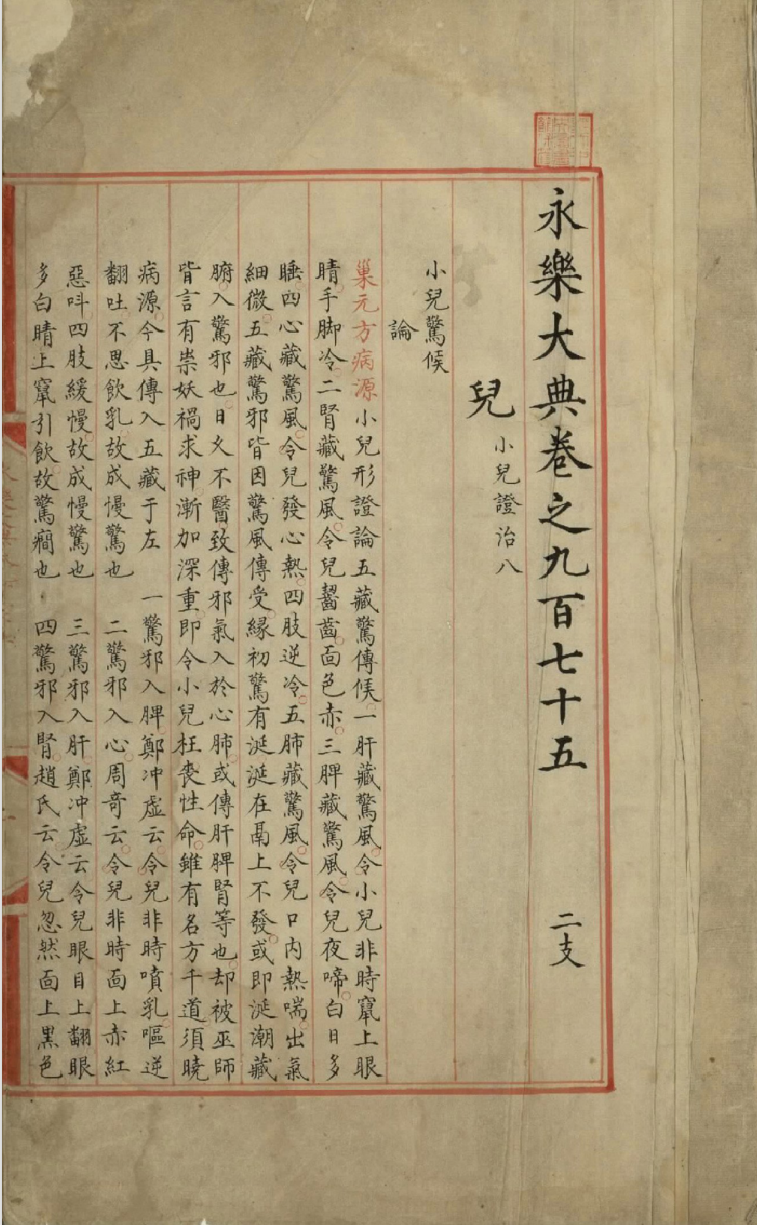 永樂大典卷之九百七十五 二支
兒 小兒證治八
小兒驚候
論
巢元方病源小兒形證論五藏驚傳候一肝藏驚風令小兒非時竄上眼
睛手脚冷二腎藏驚風令兒齧齒面色赤三脾藏驚風令兒夜啼白日多
睡四心藏驚風令兒發心熱四肢逆冷五肺藏驚風令兒口内熱喘出氣
細微五藏驚邪皆因驚風傳受緣初驚有涎涎在鬲上不發或即涎潮藏
腑入驚邪也日久不醫致傳邪氣入於心肺或傳肝脾腎等也却被巫師
皆言有祟妖禍求神漸加深重即令小兒枉喪性命雖有名方千道須曉
病源今具傳入五藏于左 一驚邪入脾鄭冲虛云令兒非時噴乳嘔逆
翻吐不思飲乳故成慢驚也 二驚邪入心周竒云令兒非時面上赤紅
惡呌四肢緩慢故成慢驚也 三驚邪入肝鄭冲虛云令兒眼目上翻眼
多白睛上竄引飲故驚癇也 四驚邪入腎趙氏云令兒忽然面上黑色